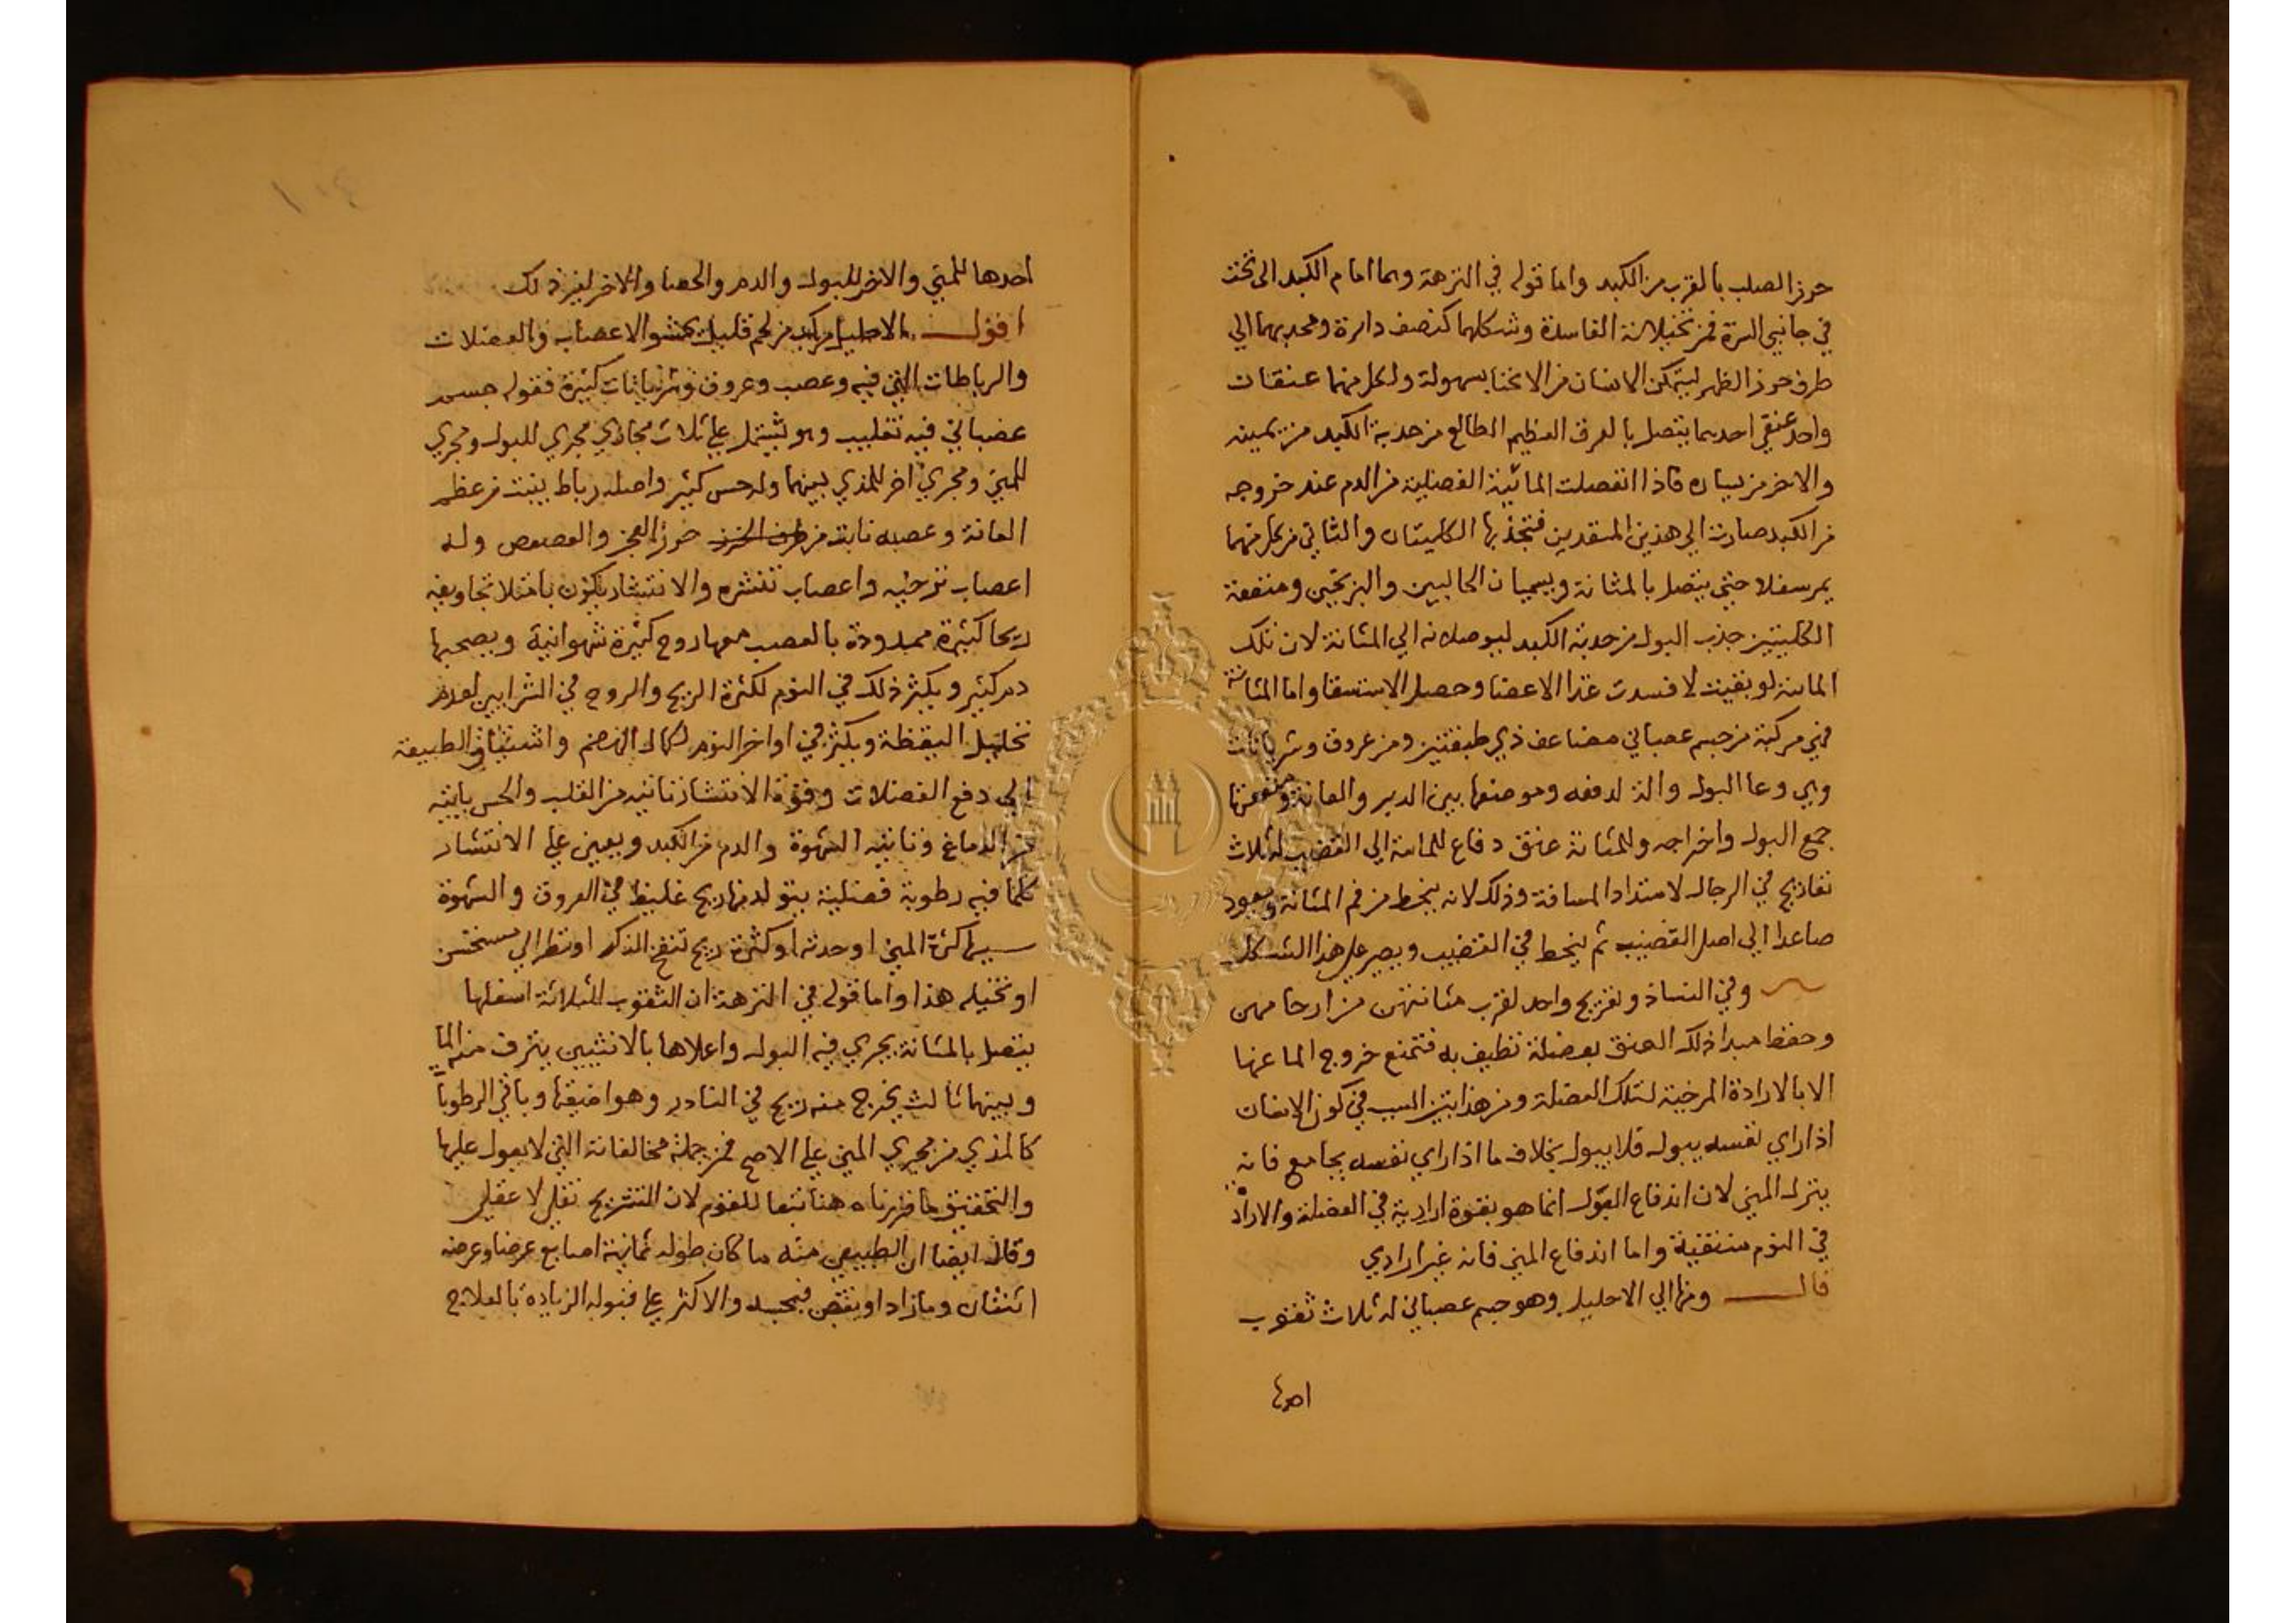 حرز الصلب بالقرب من الكبد واما قوله في النزهة وهما امام الكبد الى تحت
في جانبي السرة فمن تخيلاته الفاسدة وشكلهما كنصف دائرة ومحدبهما الي
طرف حرز الظهر ليتمكن الانسان من الانحنا بسهولة ولكل منهما عنقان
واحد عنقي احديهما يتصل بالعرق العظيم الطالع من حدبة الكبد من يمينه
والاخر من يساره فاذا انفصلت المائية الفضلية من الدم عند خروجه
من الكبد صارت الي هذين المنفذين فتجذبها الكليتان والثاني من كل منهما
يمر سفلا حتي يتصل بالمثانة ويسميان الحالبين والبربخين ومنفعة
الكليتين جذب البول من حدبة الكبد ليوصلانه الي المثانة لان تلك
المائية لو بقيت لافسدت غذا الاعضا وحصل الاستسقا واما المثانة
فهي مركبة من جسم عصباني مضاعف ذي طبقتين ومن عروق وشريانات
وهي وعا البول والة لدفعه وموضعها بين الدبر والعانة ومنفعتها
جمع البول واخراجه وللمثانة عنق دفاع للمائية الي القضيب له ثلاث
تعاريج في الرجال لامتداد المسافة وذلك لانه ينحط من فم المثانة ويعود
صاعدا الي اصل القضيب ثم ينحط في القضيب ويصير علي هذا الشكل
وفي النساذو تعريج واحد لقرب مثانتهن من ارحامهن
وحفظ مبدا ذلك العنق بعضلة تطيف به فتمنع خروج الما عنها
الا بالارادة المرخية لتلك العضلة ومن هذا يتبين السبب في كون الانسان
اذا راي نفسه يبول فلا يبول بخلاف ما اذا راي نفسه يجامع فانه
ينزل المني لان اندفاع البول انما هو بقوة ارادية في العضلة والارادة
في النوم منتفية واما اندفاع المني فانه غير ارادي
قال ومنها الي الاحليل وهو جسم عصباني له ثلاث ثقوب
احدها
احدها للمني والاخر للبول والدم والحصا والاخر لغير ذلك
اقول الاحليل مركب من لحم قليل يحشو الاعصاب والعضلات
والرباطات التي فيه وعصب وعروق وشريانات كثيرة فقوله جسم
عصباني فيه تغليب وهو يشتمل علي ثلاث مجاري مجري للبول ومجري
للمني ومجري اخر للمذي بينهما وله حس كثير واصله رباط ينبت من عظم
العانة وعصبه نابت من طرف الخرز حرز العجز والعصعص وله
اعصاب ترخيه واعصاب تنشره والانتشار يكون بامتلا تجاويفه
ريحا كثيرة ممدودة بالعصب معها روح كثيرة شهوانية ويصحبها
دم كثير ويكثر ذلك في النوم لكثرة الريح والروح في الشرايين لعدم
تحليل اليقظة ويكثر في اواخر النوم لكمال الهضم واشتياق الطبيعة
الي دفع الفضلات وقوة الانتشار تاتيه من القلب والحس ياتيه
من الدماغ وتاتيه الشهوة والدم من الكبد ويعين علي الانتشار
كلما فيه رطوبة فضلية يتولد منها ريح غليظ في العروق والشهوة
سببها كثرة المني او حدته او كثرة ريح تنفخ الذكر او نظر الي مستحسن
او تخيله هذا واما قوله في النزهة ان الثقوب الثلاثة اسفلها
يتصل بالمثانة يجري فيه البول واعلاها بالانثيين ينزف منه الما
وبينهما ثالث يخرج منه ريح في النادر وهو اضيقها وباقي الرطوبا
كالمذي من مجري المني علي الاصح فمن جملة مخالفاته التي لا يعول عليها
والتحقيق ما قررناه هنا تبعا للقوم لان التشريح نقلي لا عقلي
وقال ايضا ان الطبيعي منه ما كان طوله ثمانية اصابع عرضا وعرضه
اثنتان وما زاد او نقص فبحسبه والاكثر علي قبوله الزيادة بالعلاج